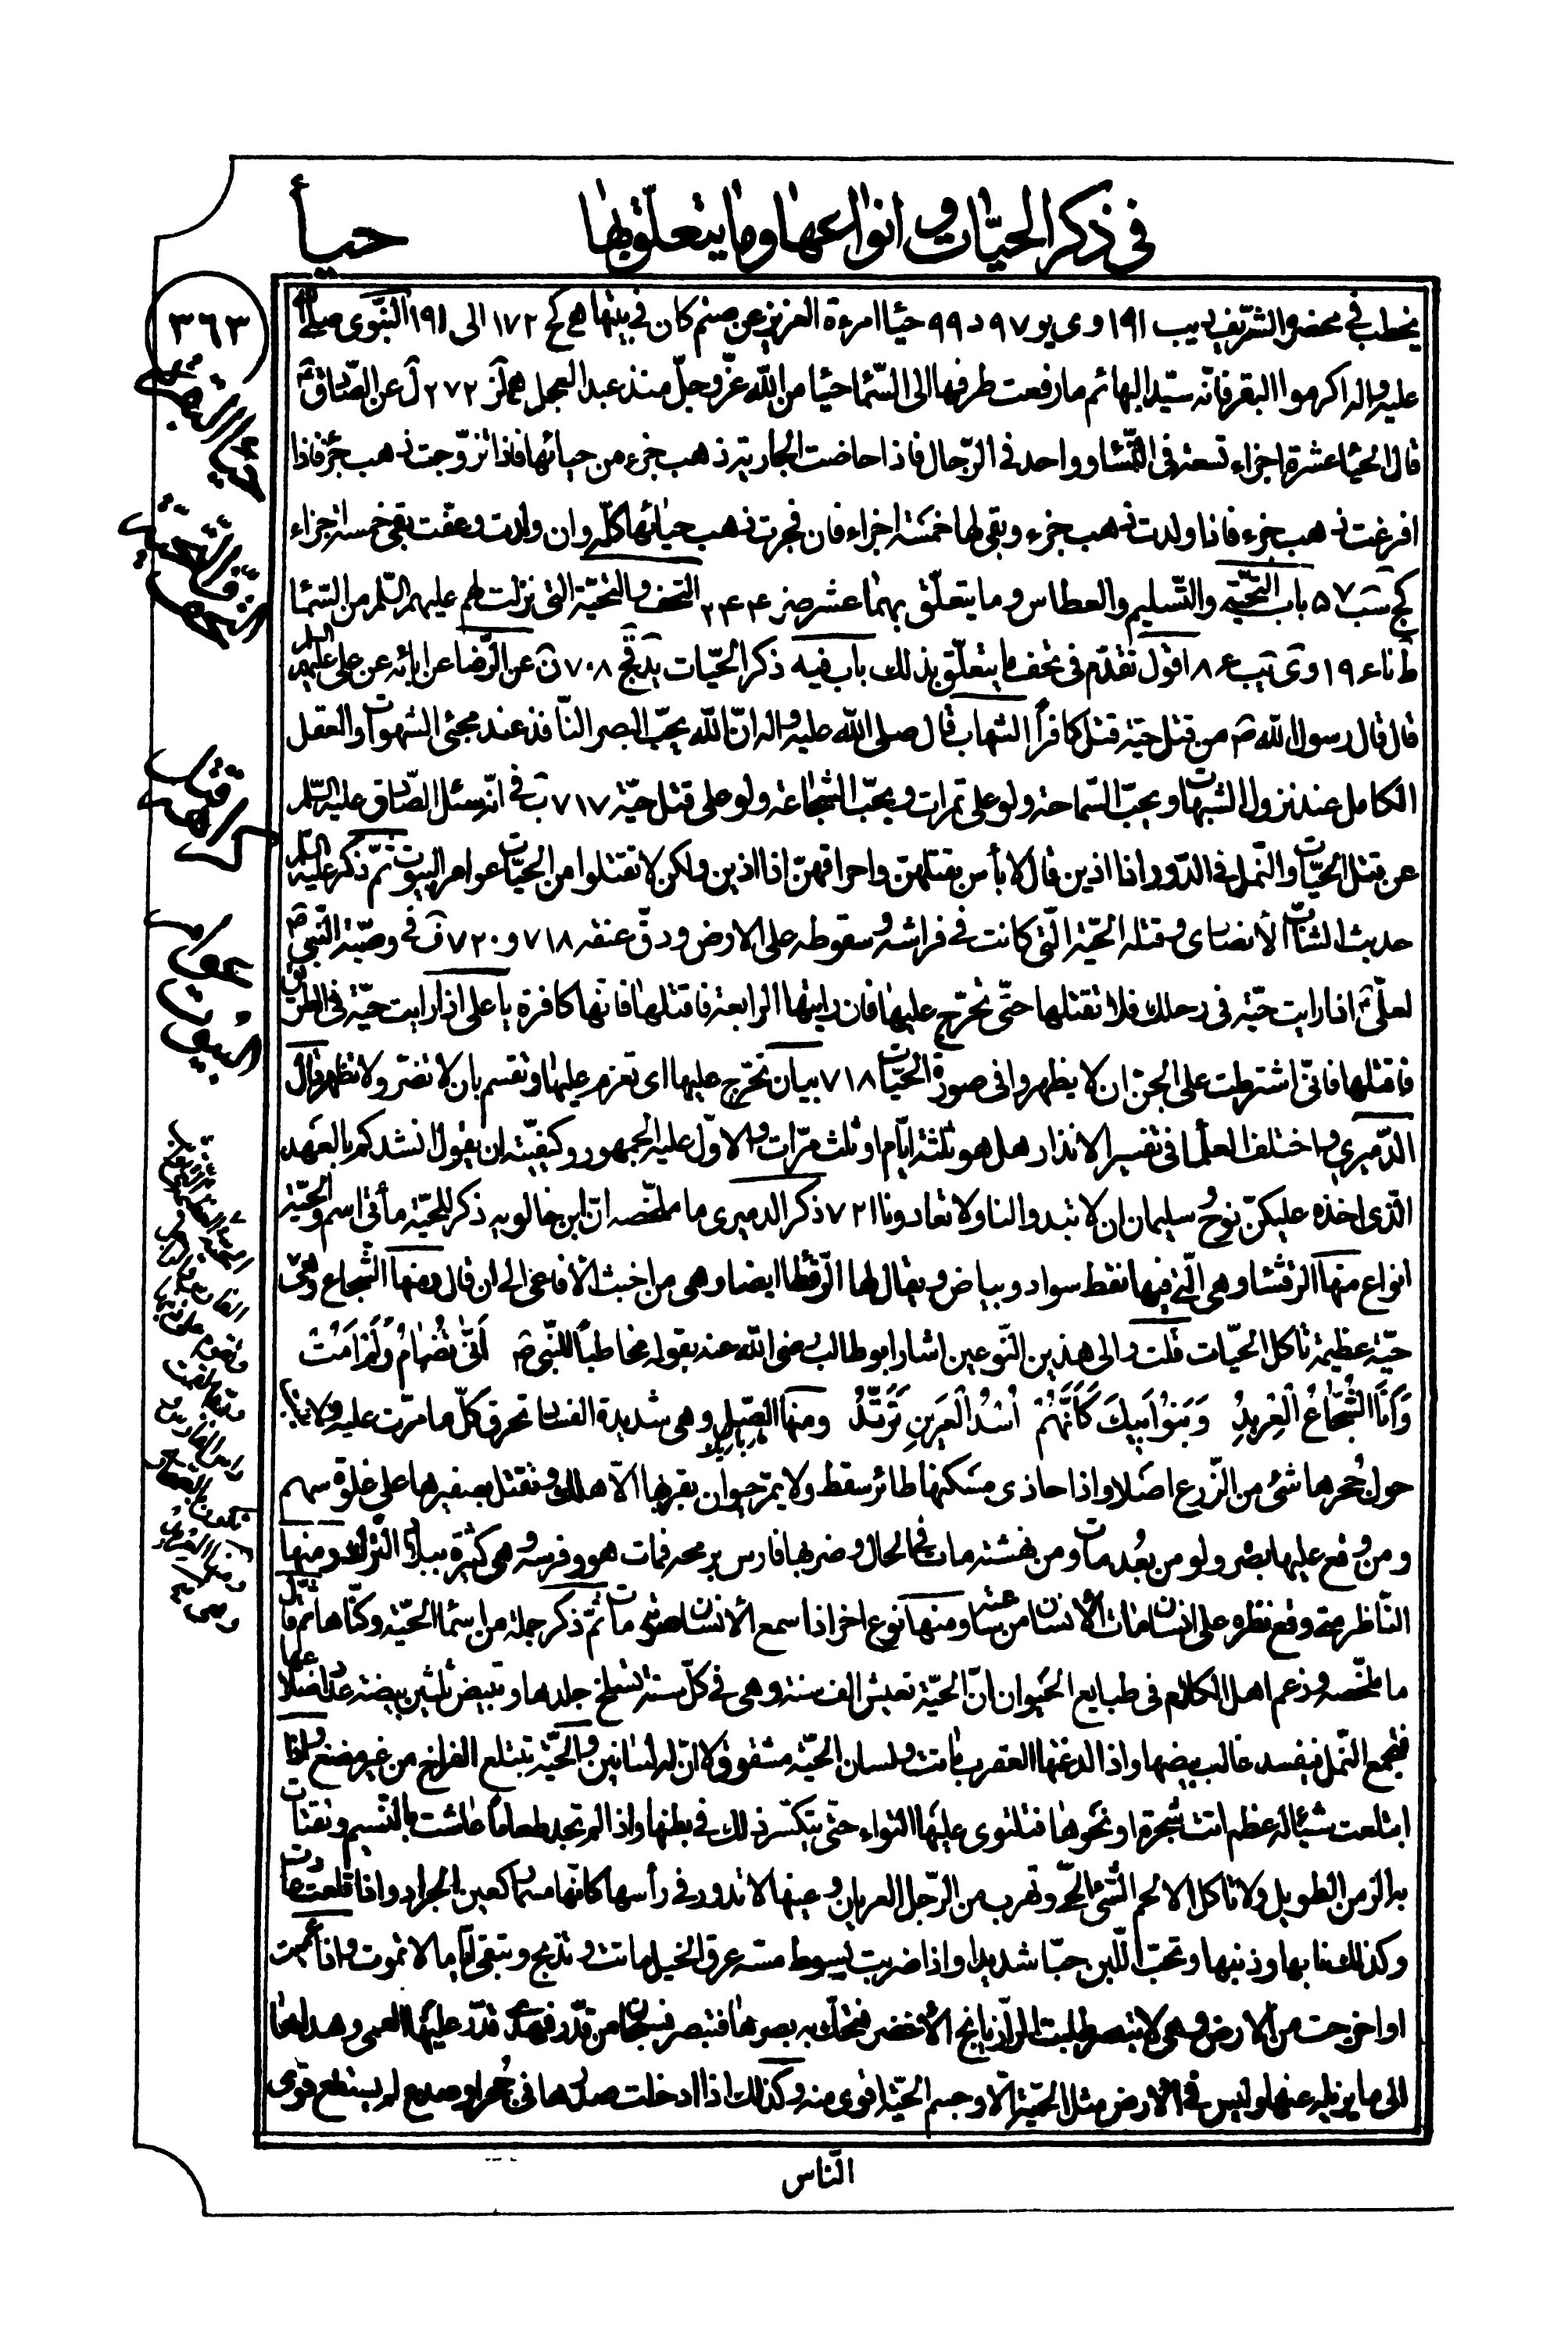 في ذكر الحيّات و انواعها وما يتعلّق بها
حيأ
٣٦٣
يخطب في محضره الشريف يب ١٩١ وى يو ٩٧ د ٩٩ حياء امرءة العزيز عن صنم كان في بيتها هج كج ١٧٢ الى ١٩١ النّبوى صلى الله
عليه واله اكرموا البقر فانّه سيّد البهائم ما رفعت طرفها الى السّماء حيئا من الله عزّوجلّ منذ عبد العجل هج لز ٢٧٢ ل عن الصّادق ع
قال الحياء عشرة اجزاء تسعة في النّساء وواحد في الرّجال فاذا حاضت الجارية ذهب جزء من حيائها فاذا تزوّجت ذهب جزء فاذا
افرغت ذهب جزء فاذا ولدت ذهب جزء وبقى لها خمسة اجزاء فان فجرت ذهب حيائها كلّه وان ولدت وعفّت بقى خمسة اجزاء
كج شب ٥٧ باب التحيّة والتّسليم والعطاس وما يتعلّق بهما عشر صز ٢٤٤ التحف والتحيّة التى نزلت لهم عليهم السّلم من السّماء
ط نا ١٩٤ وى تيب ٨٤ اقول تقدّم في تحف ما يتعلّق بذلك باب فيه ذكر الحيّات يد قج ٧٠٨ ن عن الرّضا عن ابائه عن على عليهم السلم
قال قال رسول الله ص من قتل حيّة قتل كافراً الشهاب قال صلى الله عليه واله انّ الله يحبّ البصر النّافذ عند مجئ الشهوات والعقل
الكامل عند نزول الشبهات ويحبّ السّماحة ولو على تمرات ويحبّ الشجاعة ولو على قتل حيّة ٧١٧ ب في انّه سئل الصّادق عليه السّلم
عن قتل الحيّات والنّمل في الدّور اذا اذين قال لا بأس بقتلهنّ واحراقهنّ اذا اذين ولكن لا تقتلوا من الحيّات عوامر البيوت ثمّ ذكر عليه السلم
حديث الشابّ الأنصاى وقتله الحيّة الّتى كانت في فراشه وسقوطه على الارض ودقّ عنقه ٧١٨ و ٧٢٠ ف في وصيّة النّبى ص
لعلّى ع اذا رايت حيّة في رحلك فلا تقتلها حتّى تحرّج عليها فان رايتها الرابعة فاقتلها فانّها كافرة يا على اذا رايت حيّة في الطريق
فاقتلها فانّى اشترطت على الجنّ ان لا يظهروا في صورة الحيّات ٧١٨ بيان تحرّج عليها اى تعزم عليها وتقسم بان لا تضرّ ولا تظهر قال
الدّميرى واختلف العلما في تفسير الانذار هل هو ثلثة ايّام او ثلث مرّات والاوّل عليه الجمهور وكيفيّته ان يقول انشدكم بالعهد
الّذى اخذه عليكنّ نوح وسليمان ان لا تبدوا لنا ولا تعادونا ٧٢١ ذكر الدميرى ما ملخّصه انّ ابن خالويه ذكر للحيّة مأتى اسم والحيّة
انواع منها الرقشاء وهى الّتى فيها نقط سواد وبياض ويقال لها الرّقطاء ايضا وهى من اخبث الأفاعى الى ان قال ومنها الشّجاع وهى
حيّة عظيمة تاكل الحيّات قلت والى هذين النّوعين اشار ابو طالب رضى الله عنه بقوله مخاطباً للنّبى ص اَنّى تُضامُ وَلَم اَمُت
وَاَنَا الشُّجاعُ العِربيدُ وَبَنُو اَبيكَ كَاَنَّهُم اُسُدُ العَرينِ تَوَقَّدُ ومنها الصّلّ وهى شديدة الفساد تحرق كلّ ما مرّت عليه ولا
حول جُحرها شئ من الزّرع اصلا واذا حاذى مسكنها طائر سقط ولا يمرّ حيوان بقربها الّا هلك وتقتل بصفيرها على غلوة سهم
ومن وقع عليها بصره ولو من بُعد مات ومن نهشته مات في الحال وضربها فارس برمحه فمات هو وفرسه وهى كثيرة ببلاد التّرك ومنها
النّاظر متى وقع نظره على انسان مات الأنسان من ساعته ومنها نوع اخر اذا سمع الأنسان صوته مات ثمّ ذكر جملة من اسماء الحيّة وكنّاها ثم قال
ما ملخّصه وزعم اهل الكلام في طبايع الحَيوان انّ الحيّة تعيش الف سنة وهى في كلّ سنة تسلخ جلدها وتبيض ثلثين بيضة عدد اضلاعها
فيجمع النّمل فيفسد غالب بيضها واذا لدغتها العقرب ماتت ولسان الحيّة مشقوق لا انّ له لسانين والحيّة تبتلع الفراخ من غير مضغ واذا
ابتلعت شيئا له عظم اتت شجرة او نحوها فتلتوى عليها التواء حتّى يتكسّر ذلك في بطنها واذا لم تجد طعاماً عاشت بالنّسيم وتقتات
به الزمن الطويل ولا تاكل الا لحم الشئ الحىّ وتهرب من الرّجل العريان وعينها لا تدور في رأسها كانّها مسمار كعين الجراد واذا قلعت عادت
وكذلك نابها وذنبها وتحبّ اللّبن حبّا شديدا واذا ضربت بسوط مسّه عرق الخيل ماتت وتذبح وتبقى ايّاما لا تموت واذا عميت
او اخرجت من الارض وهى لا تبصر طلبت الرازيانج الأخضر فتحكّ به بصرها فتبصر فسبحان من قدّر فهدى قدّر عليها العمى وهداها
الى ما يزيله عنها وليس في الارض مثل الحيّة الّا وجسم الحيّة اقوى منه وكذلك اذا ادخلت صدرها في جُحر او صدع لم يستطع قوىّ
الناس